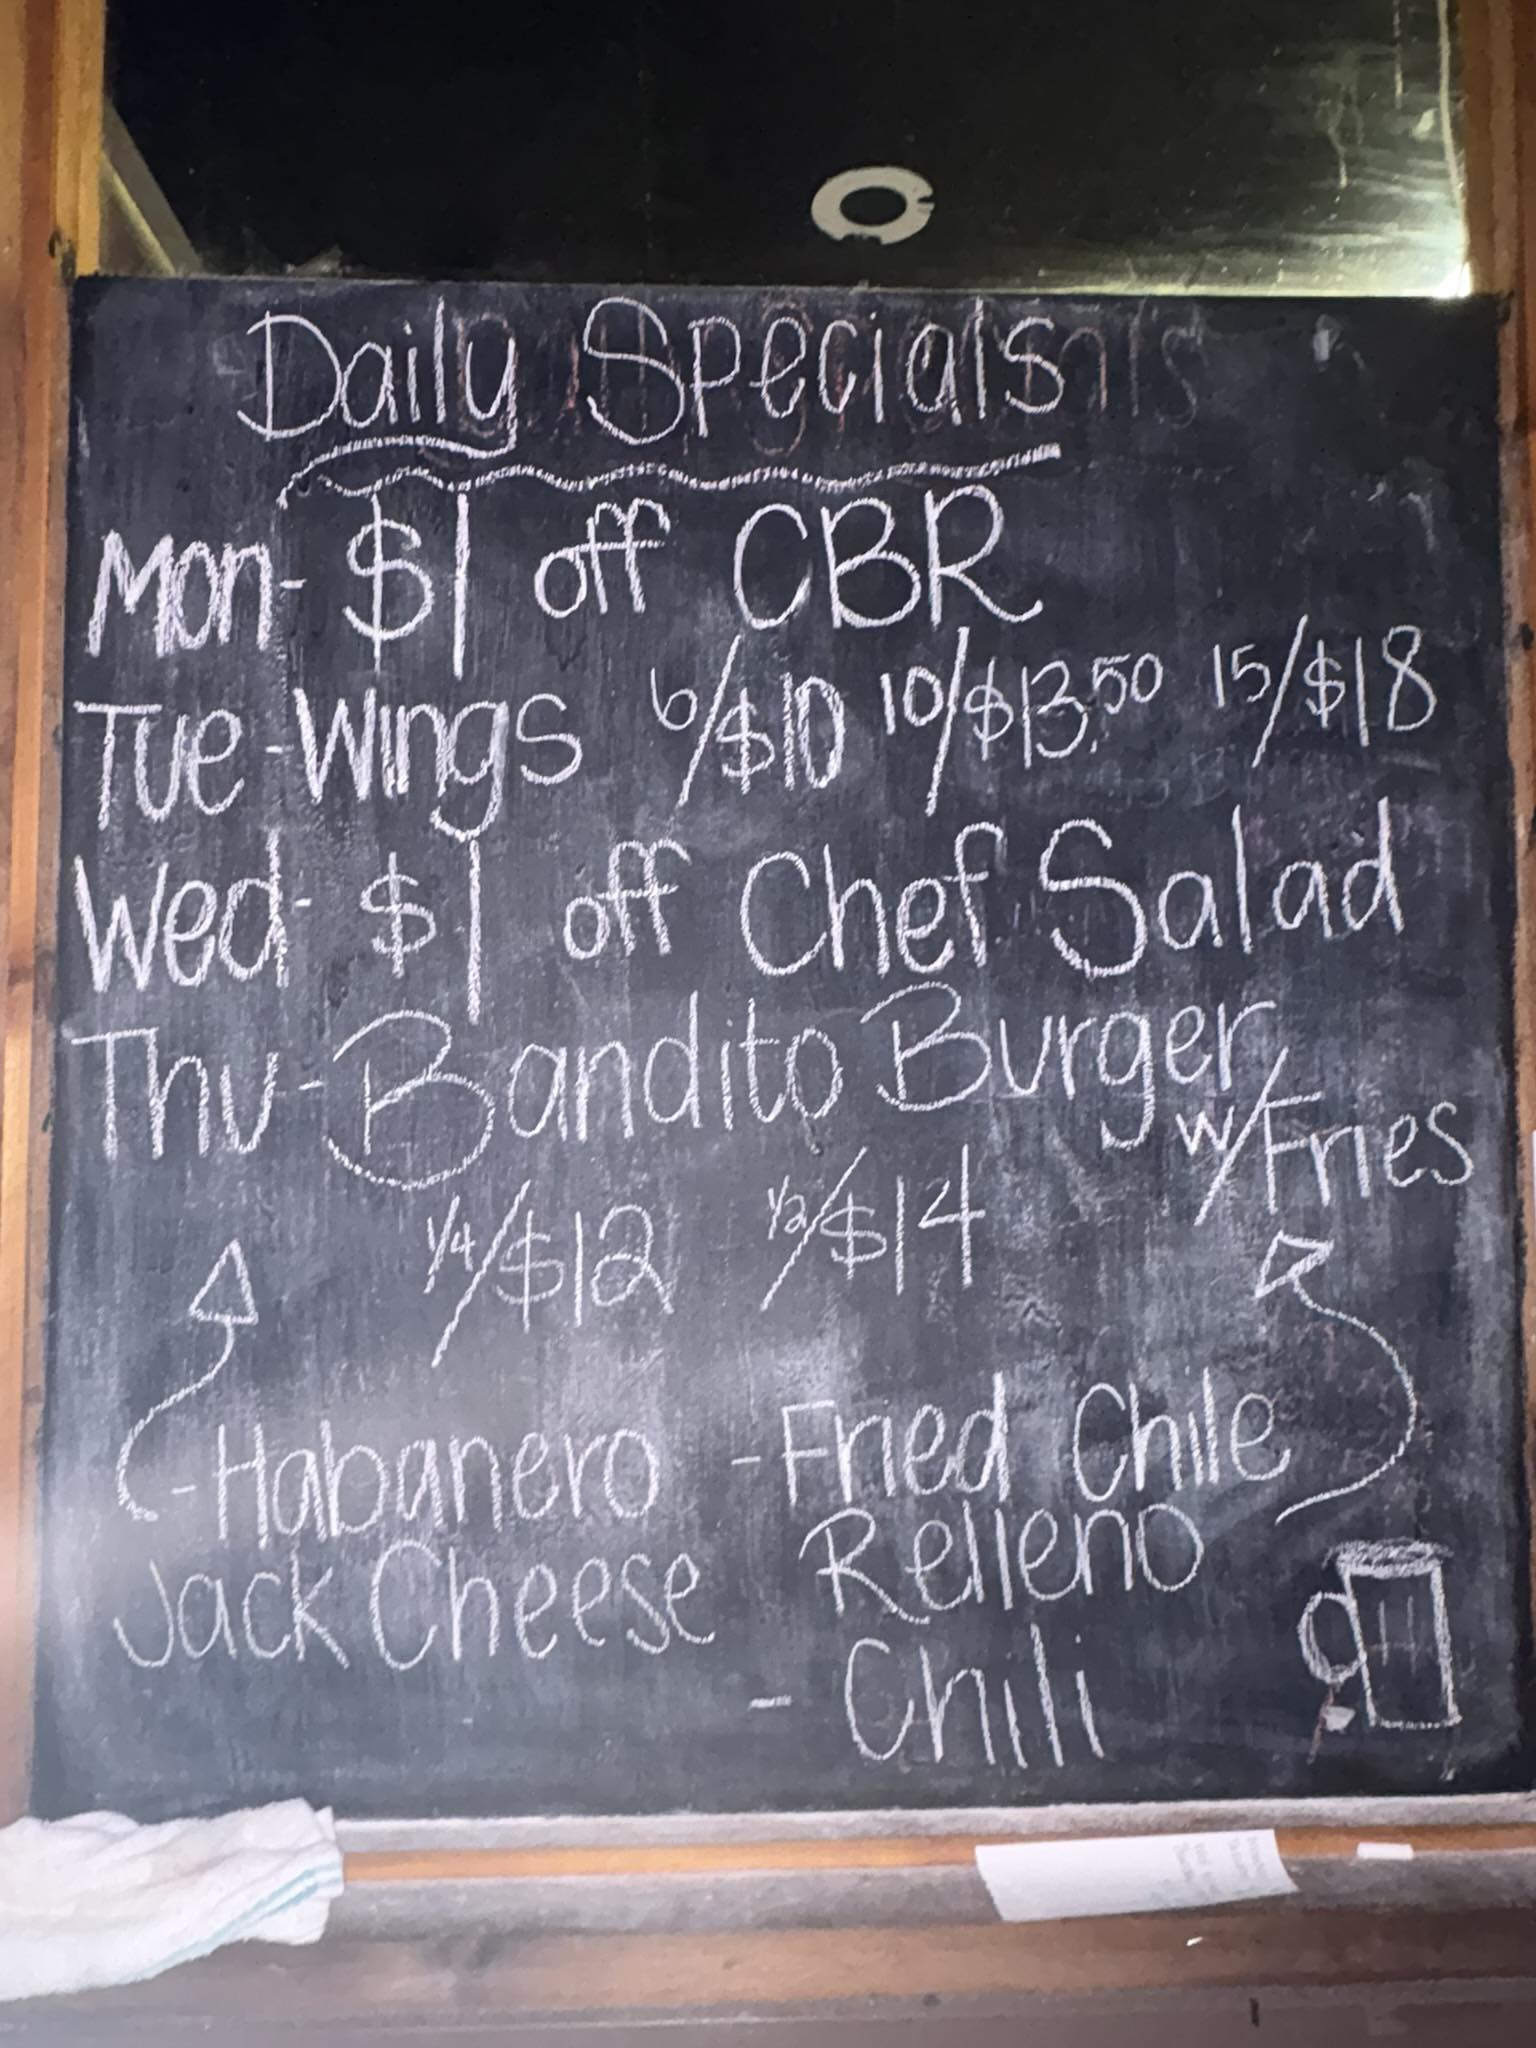 Daily Specials
Mon- $1 off CBR
Tue-Wings 6/$10 10/$13.50 15/$18
Wed- $1 off Chef Salad
Thu-Bandito Burger
w/Fries
1/4/$12 1/2/$14
-Habanero -Fried Chile
Jack Cheese Relleno
- Chili